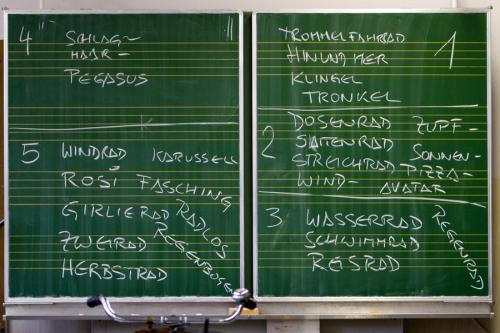 4
SCHLAG-
HAAR-
PEGASUS
5
WINDRAD KARUSSELL
ROSI FASCHING
GIRLIERAD RADLOS
ZWEIRAD REGENBOGEN
HERBSTRAD
1
TROMMELFAHRRAD
HINUNDHER
KLINGEL
TRONKEL
2
DOSENRAD ZUPF-
SAITENRAD
STREICHRAD SONNEN-
WIND- PIZZA-
AVATAR
3
WASSERRAD REGENRAD
SCHWIMMRAD
REISRAD